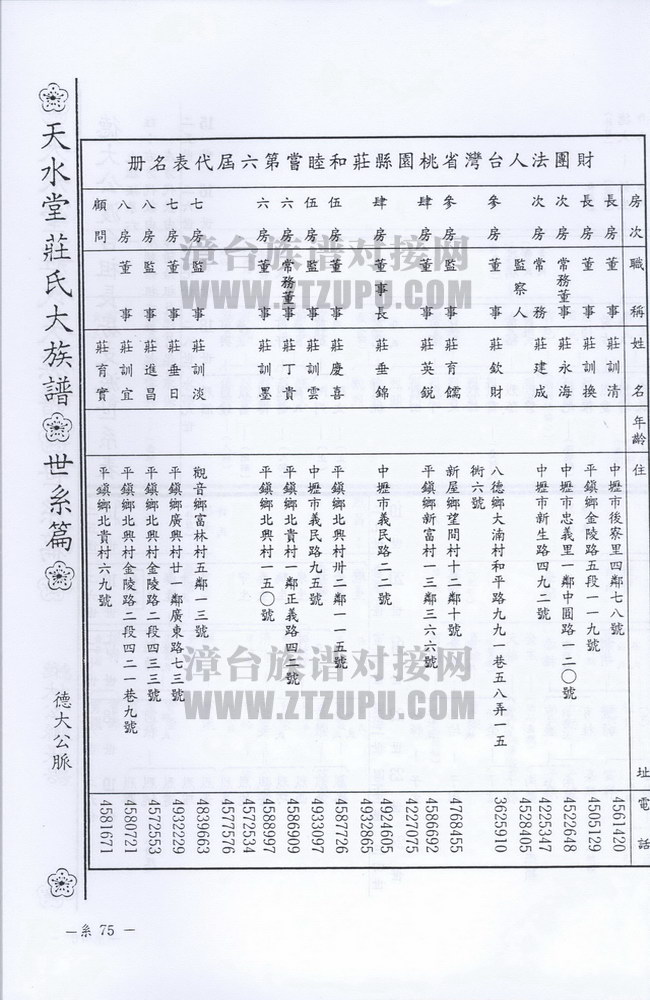 財團法人台灣省桃園縣莊和睦嘗第六屆代表名册
房次 職稱 姓名 年齡 住址 電話
長房 董事 莊訓清 中壢市後寮里四鄰七八號 4561420
長房 董事 莊訓換 平鎮鄉金陵路五段一一九號 4505129
次房 常務董事 莊永海 中壢市忠義里一鄰中圓路一二〇號 4522648
次房 常務監察人 莊建成 中壢市新生路四九二號 4225347 4528405
參房 董事 莊欽財 八德鄉大湳村和平路九九一巷五八弄一五衖六號 3625910
參房 監事 莊育儒 新屋鄉望間村十二鄰十號 4768455
肆房 董事 莊英銳 平鎮鄉新富村一三鄰三六六號 4586692 4227075
肆房 董事長 莊垂錦 中壢市義民路二二號 4924605 4932865
伍房 董事 莊慶喜 平鎮鄉北興村卅二鄰一一五號 4587726
伍房 監事 莊訓雲 中壢市義民路九五號 4933097
六房 常務董事 莊丁貴 平鎮鄉北貴村一鄰正義路四二號 4586909
六房 董事 莊訓墨 平鎮鄉北興村一五〇號 4588997 4572534 4577576
七房 監事 莊訓淡 觀音鄉富林村五鄰一三號 4839663
七房 董事 莊垂日 平鎮鄉廣興村廿一鄰廣東路七三號 4932229
八房 監事 莊進昌 平鎮鄉北興村金陵路二段四三三號 4572553
八房 董事 莊訓宜 平鎮鄉北興村金陵路二段四二一巷九號 4580721
顧問 莊育實 平鎮鄉北貴村六九號 4581671
天水堂莊氏大族譜 世系篇 德大公脈
—系 75 —
漳台族谱对接网
WWW.ZTZUPU.COM
漳台族谱对接网
WWW.ZTZUPU.COM